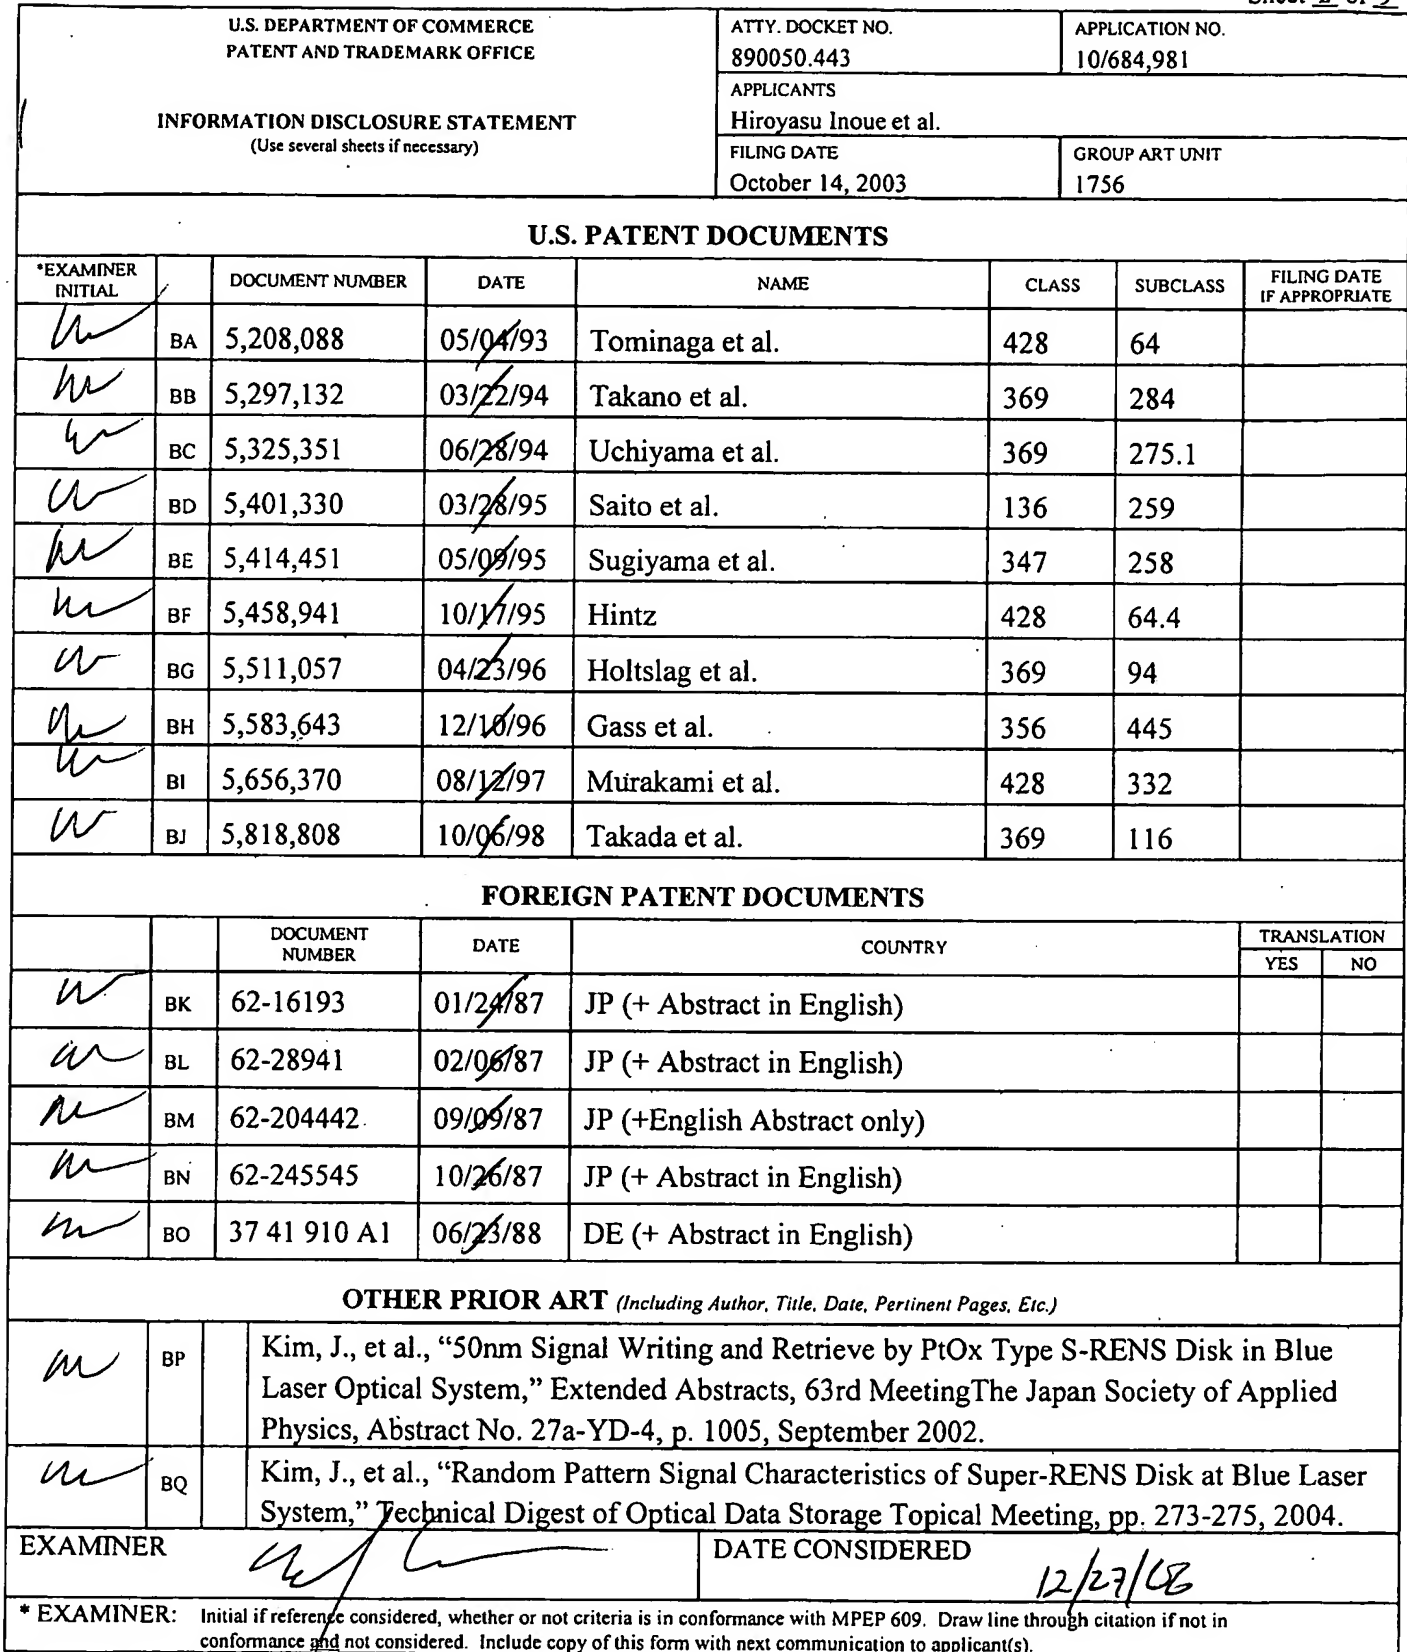 U.S. DEPARTMENT OF COMMERCE
PATENT AND TRADEMARK OFFICE
INFORMATION DISCLOSURE STATEMENT
(Use several sheets if necessary)
ATTY. DOCKET NO.
890050.443
APPLICATION NO.
10/684,981
APPLICANTS
Hiroyasu Inoue et al.
FILING DATE
October 14, 2003
GROUP ART UNIT
1756
U.S. PATENT DOCUMENTS
*EXAMINER INITIAL DOCUMENT NUMBER DATE NAME CLASS SUBCLASS FILING DATE IF APPROPRIATE
BA 5,208,088 05/04/93 Tominaga et al. 428 64
BB 5,297,132 03/22/94 Takano et al. 369 284
BC 5,325,351 06/28/94 Uchiyama et al. 369 275.1
BD 5,401,330 03/28/95 Saito et al. 136 259
BE 5,414,451 05/09/95 Sugiyama et al. 347 258
BF 5,458,941 10/17/95 Hintz 428 64.4
BG 5,511,057 04/23/96 Holtslag et al. 369 94
BH 5,583,643 12/10/96 Gass et al. 356 445
BI 5,656,370 08/12/97 Murakami et al. 428 332
BJ 5,818,808 10/06/98 Takada et al. 369 116
FOREIGN PATENT DOCUMENTS
DOCUMENT NUMBER DATE COUNTRY TRANSLATION
YES NO
BK 62-16193 01/24/87 JP (+ Abstract in English)
BL 62-28941 02/06/87 JP (+ Abstract in English)
BM 62-204442 09/09/87 JP (+English Abstract only)
BN 62-245545 10/26/87 JP (+ Abstract in English)
BO 37 41 910 A1 06/23/88 DE (+ Abstract in English)
OTHER PRIOR ART (Including Author, Title, Date, Pertinent Pages, Etc.)
BP Kim, J., et al., “50nm Signal Writing and Retrieve by PtOx Type S-RENS Disk in Blue
Laser Optical System,” Extended Abstracts, 63rd MeetingThe Japan Society of Applied
Physics, Abstract No. 27a-YD-4, p. 1005, September 2002.
BQ Kim, J., et al., “Random Pattern Signal Characteristics of Super-RENS Disk at Blue Laser
System,” Technical Digest of Optical Data Storage Topical Meeting, pp. 273-275, 2004.
EXAMINER DATE CONSIDERED
* EXAMINER: Initial if reference considered, whether or not criteria is in conformance with MPEP 609. Draw line through citation if not in
conformance and not considered. Include copy of this form with next communication to applicant(s).